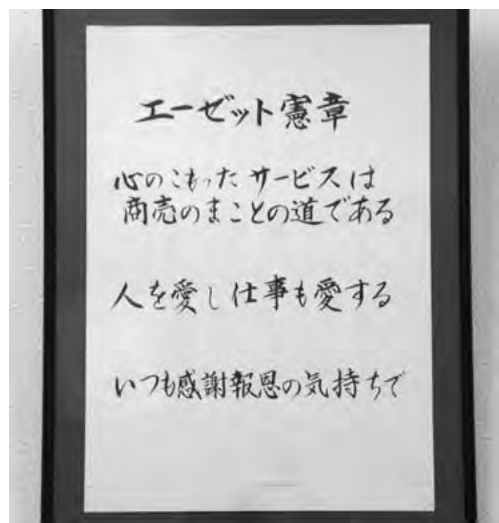 エーゼット憲章
心のこもったサービスは
商売のまことの道である
人を愛し仕事も愛する
いつも感謝報恩の気持ちで